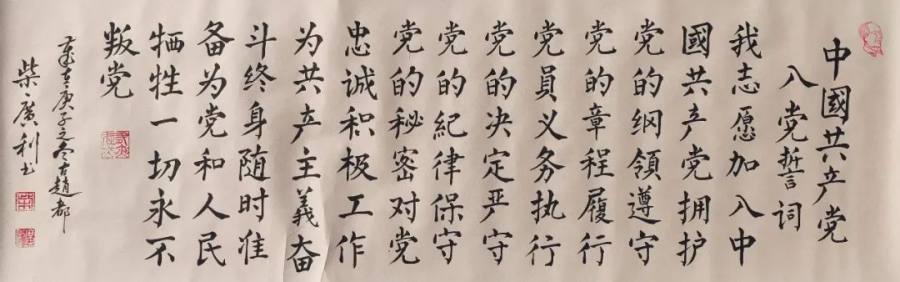 中國共产党
入党誓词
我志愿加入中
國共产党拥护
党的纲領遵守
党的章程履行
党員义务执行
党的决定严守
党的紀律保守
党的秘密对党
忠诚积极工作
为共产主義奋
斗终身随时准
备为党和人民
牺牲一切永不
叛党
庚子之冬古趙都
柴廣利书